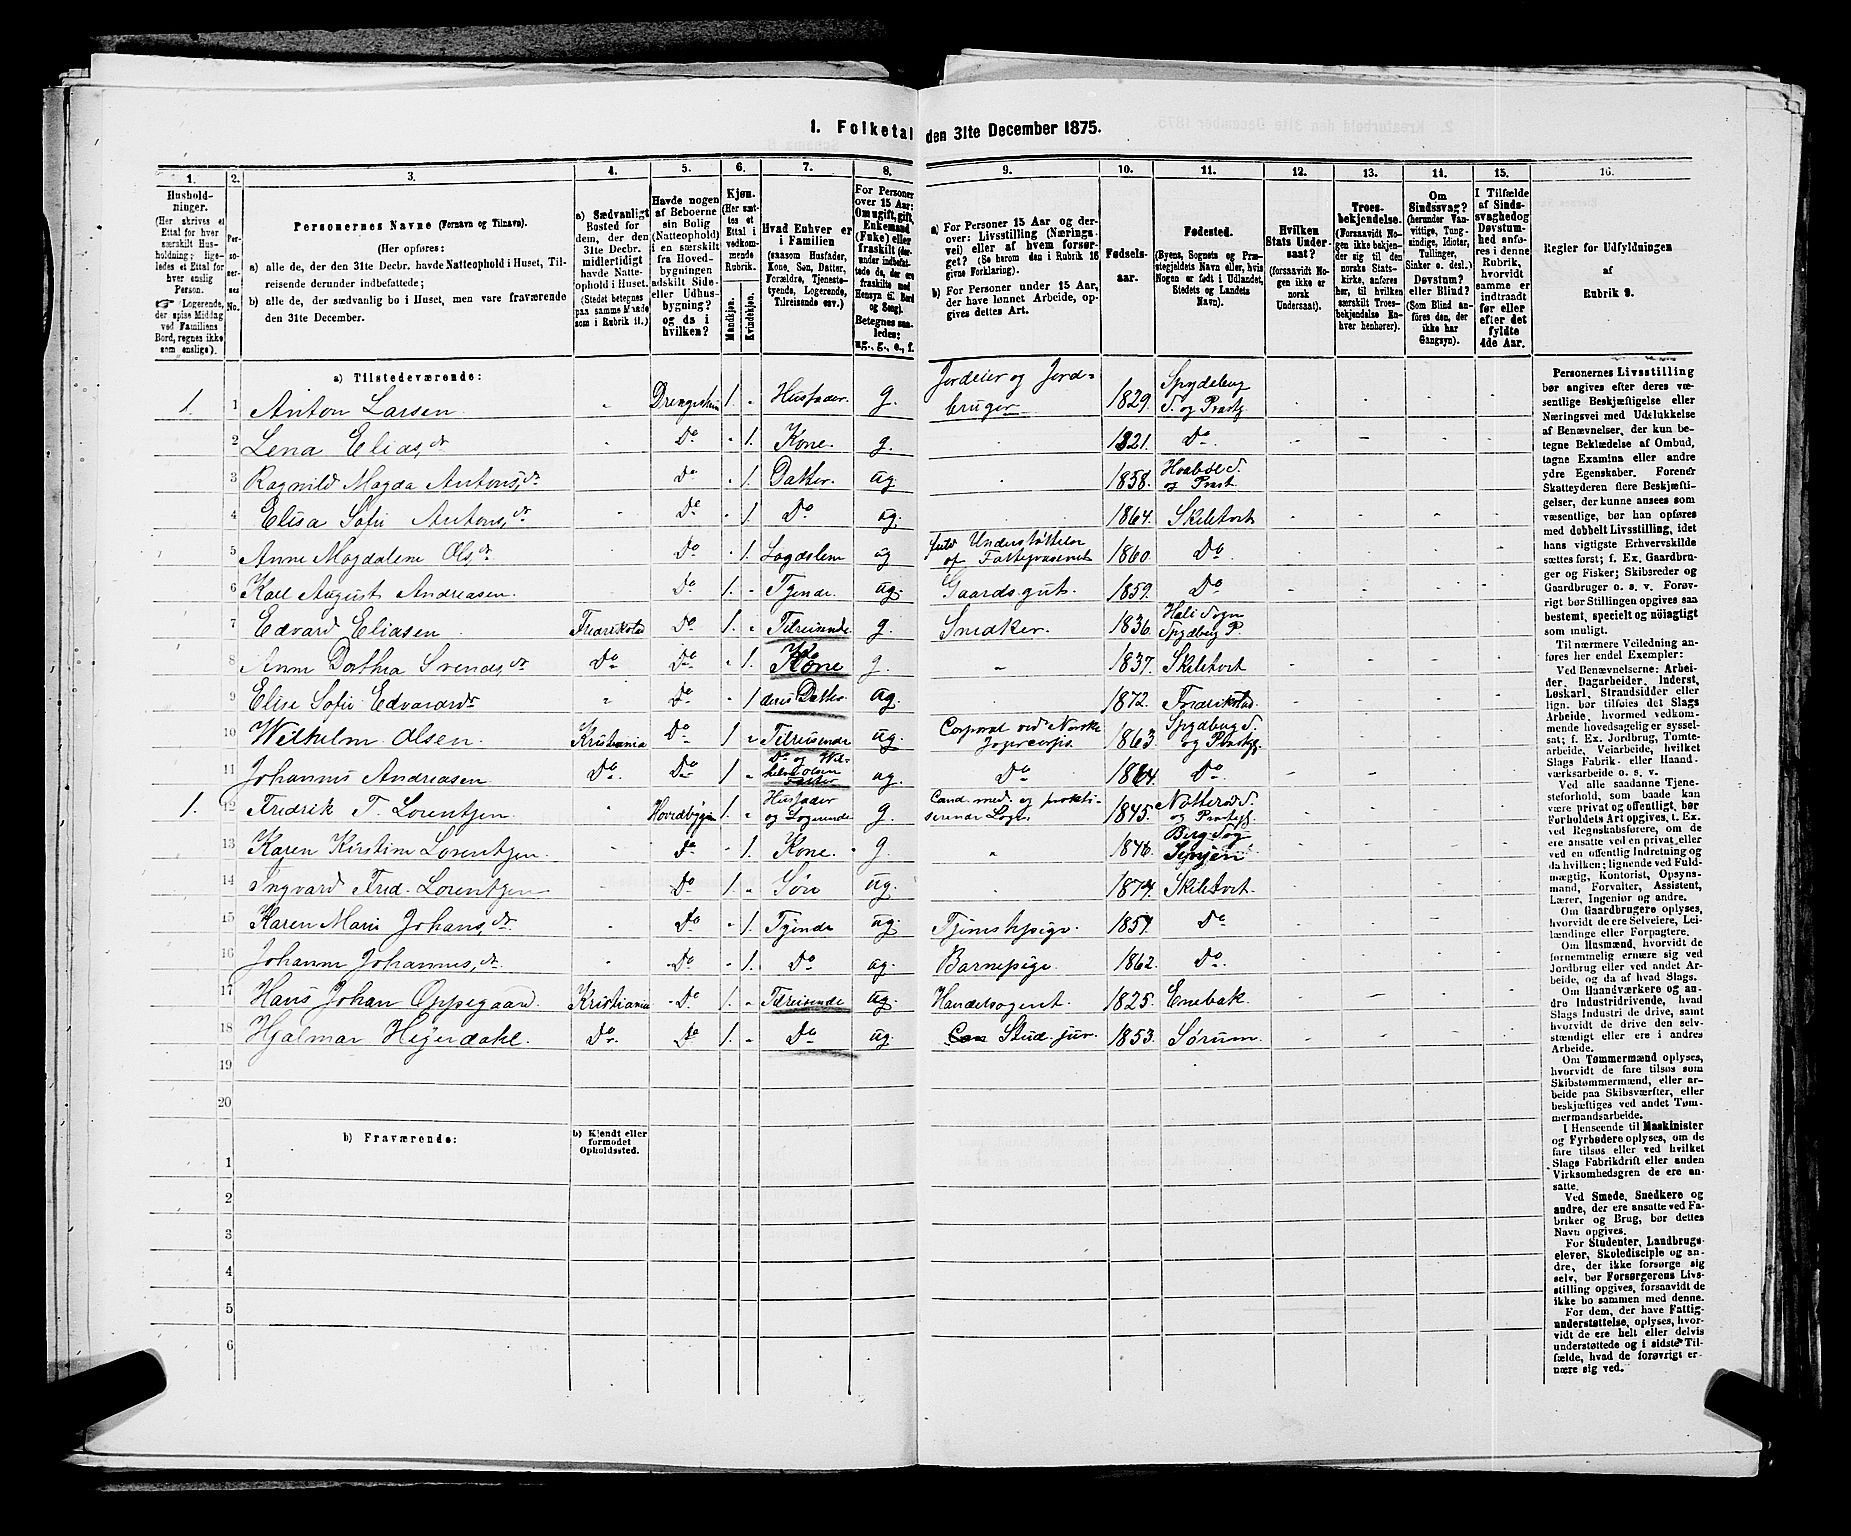 1. Folketal den 31te December 1875.
1.
2.
3.
4.
5.
6.
7.
8.
9.
10.
11.
12.
13.
14.
15.
16.
Hushold-
ninger.
(Her skrives et
Ettal for hver
særskilt Hus-
holdning; lige-
ledes et Ettal for
hver enslig
Person.
☞ Logerende,
der spise Middag
ved Familiens
Bord, regnes ikke
som enslige).
Per-
so-
ner-
nes
No.
Personernes Navne (Fornavn og Tilnavn).
(Her opføres:
a) alle de, der den 31te Decbr. havde Natteophold i Huset, Til-
reisende derunder indbefattede;
b) alle de, der sædvanlig bo i Huset, men vare fraværende
den 31te December.
a) Sædvanligt
Bosted for
dem, der den
31te Decbr.
midlertidigt
havde Natte-
ophold i Huset.
(Stedet betegnes
paa samme Maade
som i Rubrik 11.)
Havde nogen
af Beboerne
sin Bolig
(Natteophold)
i en særskilt
fra Hoved-
bygningen
adskilt Side-
eller Udhus-
bygning?
og da i
hvilken?
Kjøn.
(Her sæt-
tes et
Ettal i
vedkom-
mende
Rubrik.
Mandkjøn.
Kvindekjøn.
Hvad Enhver er
i Familien
(saasom Husfader,
Kone, Søn, Datter,
Forældre, Tjeneste-
tyende, Logerende,
Tilreisende osv.)
For Personer
over 15 Aar:
Om ugift, gift,
Enkemand
(Enke) eller
fraskilt (der-
under indbefat-
tede de, der ere
fraskilte med
Hensyn til Bord
og Seng).
Betegnes saa-
ledes:
ug., g., e., f.
a) For Personer 15 Aar og der-
over: Livsstilling (Nærings-
vei) eller af hvem forsør-
get? (Se herom den i Rubrik 16
givne Forklaring).
b) For Personer under 15 Aar,
der have lønnet Arbeide, op-
gives dettes Art.
Fødsels-
aar.
Fødested.
(Byens, Sognets og Præ-
stegjeldets Navn eller, hvis
Nogen er født i Udlandet,
Stedets og Landets
Navn).
Hvilken
Stats Under-
saat?
(forsaavidt No-
gen ikke er
norsk
Undersaat).
Troes-
bekjendelse.
(Forsaavidt No-
gen ikke bekjen-
der sig til den
norske Stats-
kirke, anføres
her, til hvilken
særskilt Troes-
bekjendelse En-
hver henhører).
Om
Sindssvag?
(herunder Van-
vittige, Tung-
sindige, Idioter,
Tullinger,
Sinker o. desl.)
Døvstum?
eller Blind?
(Som Blind an-
føres den, der
ikke har
Gangsyn).
I Tilfælde
af Sinds-
svaghed og
Døvstum-
hed anfø-
res i denne
Rubrik,
hvorvidt
samme er
indtraadt
før eller
efter det
fyldte
4de Aar.
Regler for Udfyldningen
af
Rubrik 9.
a) Tilstedeværende:
1. 1 Anton Larsen. " 1. " Husfader. g. Jordeier og Jord-
bruger 1829. Spydeberg
S. og Prstg. - - - -
2 Lena Elias.dr. - Do - 1. Kone. g. - 1821. Do - - - -
3 Ragnild Magda Antons.dr. - Do - 1. Datter. ug. - 1858. Hvabøl S.
og Prst. - - - -
4 Elisa Sofie Antons.dr. - Do - 1. Do ug. - 1864. Skibtvet - - - -
5 Anne Magdalene Ols.dr. - Do - 1. Lægdslem ug fuld Understøttelse
af Fattigvæsenet 1860. Do - - - -
6 Karl August Andreasen. - Do 1. - Tjende. ug. Gaardsgut. 1859. Do - - - -
7 Edvard Eliasen Fredrikstad Do 1. - Tilreisende g. Snedker. 1836. Sogn
Spydberg P. - - - -
8 Anne Dorthea Svends.dr. Do Do - 1. Kone g. " 1837. Skibtvet - - - -
9 Elise Sofie Edvardsdr. " Do - 1 deres Datter ug. - 1872. Fredrikstad. - - - -
10 Wilhelm Olsen. Kristiania Do 1 - Tilreisende ug. Corporal ved Norske
Jægercorps. 1863 Spydberg S.
og Prstg. - - - -
11 Johannes Andreasen Do. Do 1 - Do og Wil-
helm Olsen
ug. Do 1864. Do. - - - -
1. 12 Fredrik T. Lorentzen. - Hovedbygn 1. - Husfader
og Logerende g. Cand. med. og prakti-
serende Læge. 1845. Nøtterø S.
og Prstgj. - - - -
13 Karen Kirstine Lorentzen. - Do - 1. Kone. g. " 1846. Berg Sogn
- - - -
14 Ingvard Fred. Lorentzen - Do 1. - Søn ug. - 1874. Skibtvet. - - - -
15 Karen Marie Johans.dr. - Do - 1. Tjende ug. Tjenstpige. 1857. Do - - - -
16 Johanne Johannes.dr. - Do - 1. Do ug. Barnepige. 1862. Do. - - - -
17 Hans Johan Oppegaard. Kristiania - Do 1. - Tilreisende ug. Handelsagent. 1825. Enebak. - - - -
18 Hjalmar Heyerdahl. Do. Do 1. - Do ug. Stud. jur. 1853. Sørum. - - - -
19
20
b) Fraværende:
b) Kjendt eller
formodet
Opholdssted.
1
2
3
4
5
6
Personernes Livsstilling
bør angives efter deres væ-
sentlige Beskjæftigelse eller
Næringsvei med Udelukkelse
af Benævnelser, der kun be-
tegne Beklædelse af Ombud,
tagne Examina eller andre
ydre Egenskaber. Forener
Skatteyderen flere Beskjæfti-
gelser, der kunne ansees som
væsentlige, bør han opføres
med dobbelt Livsstilling, idet
hans vigtigste Erhvervskilde
sættes først; f. Ex. Gaardbru-
ger og Fisker; Skibsreder og
Gaardbruger o. s. v. Forøv-
rigt bør Stillingen opgives saa
bestemt, specielt og nöiagtigt
som muligt.
Til nærmere Veiledning an-
føres her endel Exempler:
Ved Benævnelserne: Arbei-
der, Dagarbeider, Inderst,
Løskarl, Strandsidder eller
lign. bør tilføies det Slags
Arbeide, hvormed vedkom-
mende hovedsagelig er syssel-
sat; f. Ex. Jordbrug, Tømte-
arbeide, Veiarbeide, hvilket
Slags Fabrik- eller Haand-
værksarbeide o. s. v.
Ved alle saadanne Tjene-
steforhold, som baade kan
være privat og offentligt, bør
Forholdets Art opgives, t. Ex.
ved Regnskabsførere, om de
ere ansatte ved en privat eller
ved en offentlig Indretning og
da hvilken; lignende ved Fuld-
mægtig, Kontorist, Opsyns-
mand, Forvalter, Assistent,
Lærer, Ingeniør og andre.
Om Gaardbrugere oplyses,
hvorvidt de ere Selveiere, Lei-
lændinge eller Forpagtere.
Om Husmænd, hvorvidt de
fornemmelig ernære sig ved
Jordbrug eller ved andet Ar-
beide, og da af hvad Slags.
Om Haandværkere og an-
dre Industridrivende, hvad
Slags Industri de drive, samt
hvorvidt de drive den selv-
stændigt eller ere i andres
Arbeide.
Om Tømmermænd oplyses,
hvorvidt de fare tilsøs som
Skibstømmermænd, eller ar-
beide paa Skibsværfter, eller
beskjæftiges ved andet Tøm-
mermandsarbeide.
I Henseende til Maskinister
og Fyrbødere oplyses, om de
fare tilsøs eller ved hvilket
Slags Fabrikdrift eller anden
Virksomhedsgren de ere an-
satte.
Ved Smede, Snedkere og
andre, der ere ansatte ved Fa-
briker og Brug, bør dettes
Navn opgives.
For Studenter, Landbrugs-
elever, Skoledisciple og an-
dre, der ikke forsørge sig
selv, bør Forsørgerens Livs-
stilling opgives, forsaavidt de
ikke bo sammen med denne.
For dem, der have Fattig-
understøttelse, oplyses, hvor-
vidt de ere helt eller delvis
understøttede og i sidste Til-
fælde, hvad de forøvrigt er-
nære sig ved.